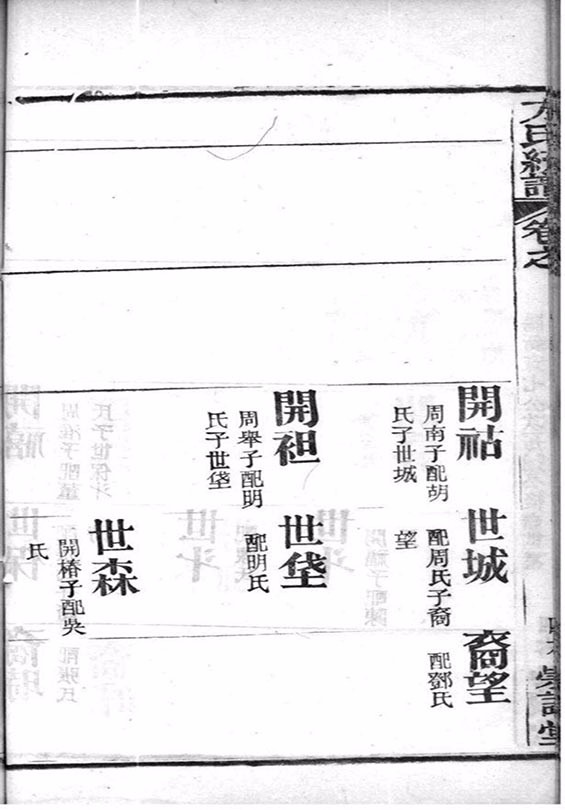 方氏統譜
卷之
崇訓堂
開祜
周南子配胡
氏子世城
世城
配周氏子裔
望
裔望
配鄧氏
開袒
周舉子配明
氏子世垡
世垡
配明氏
世森
開椿子配吳
氏